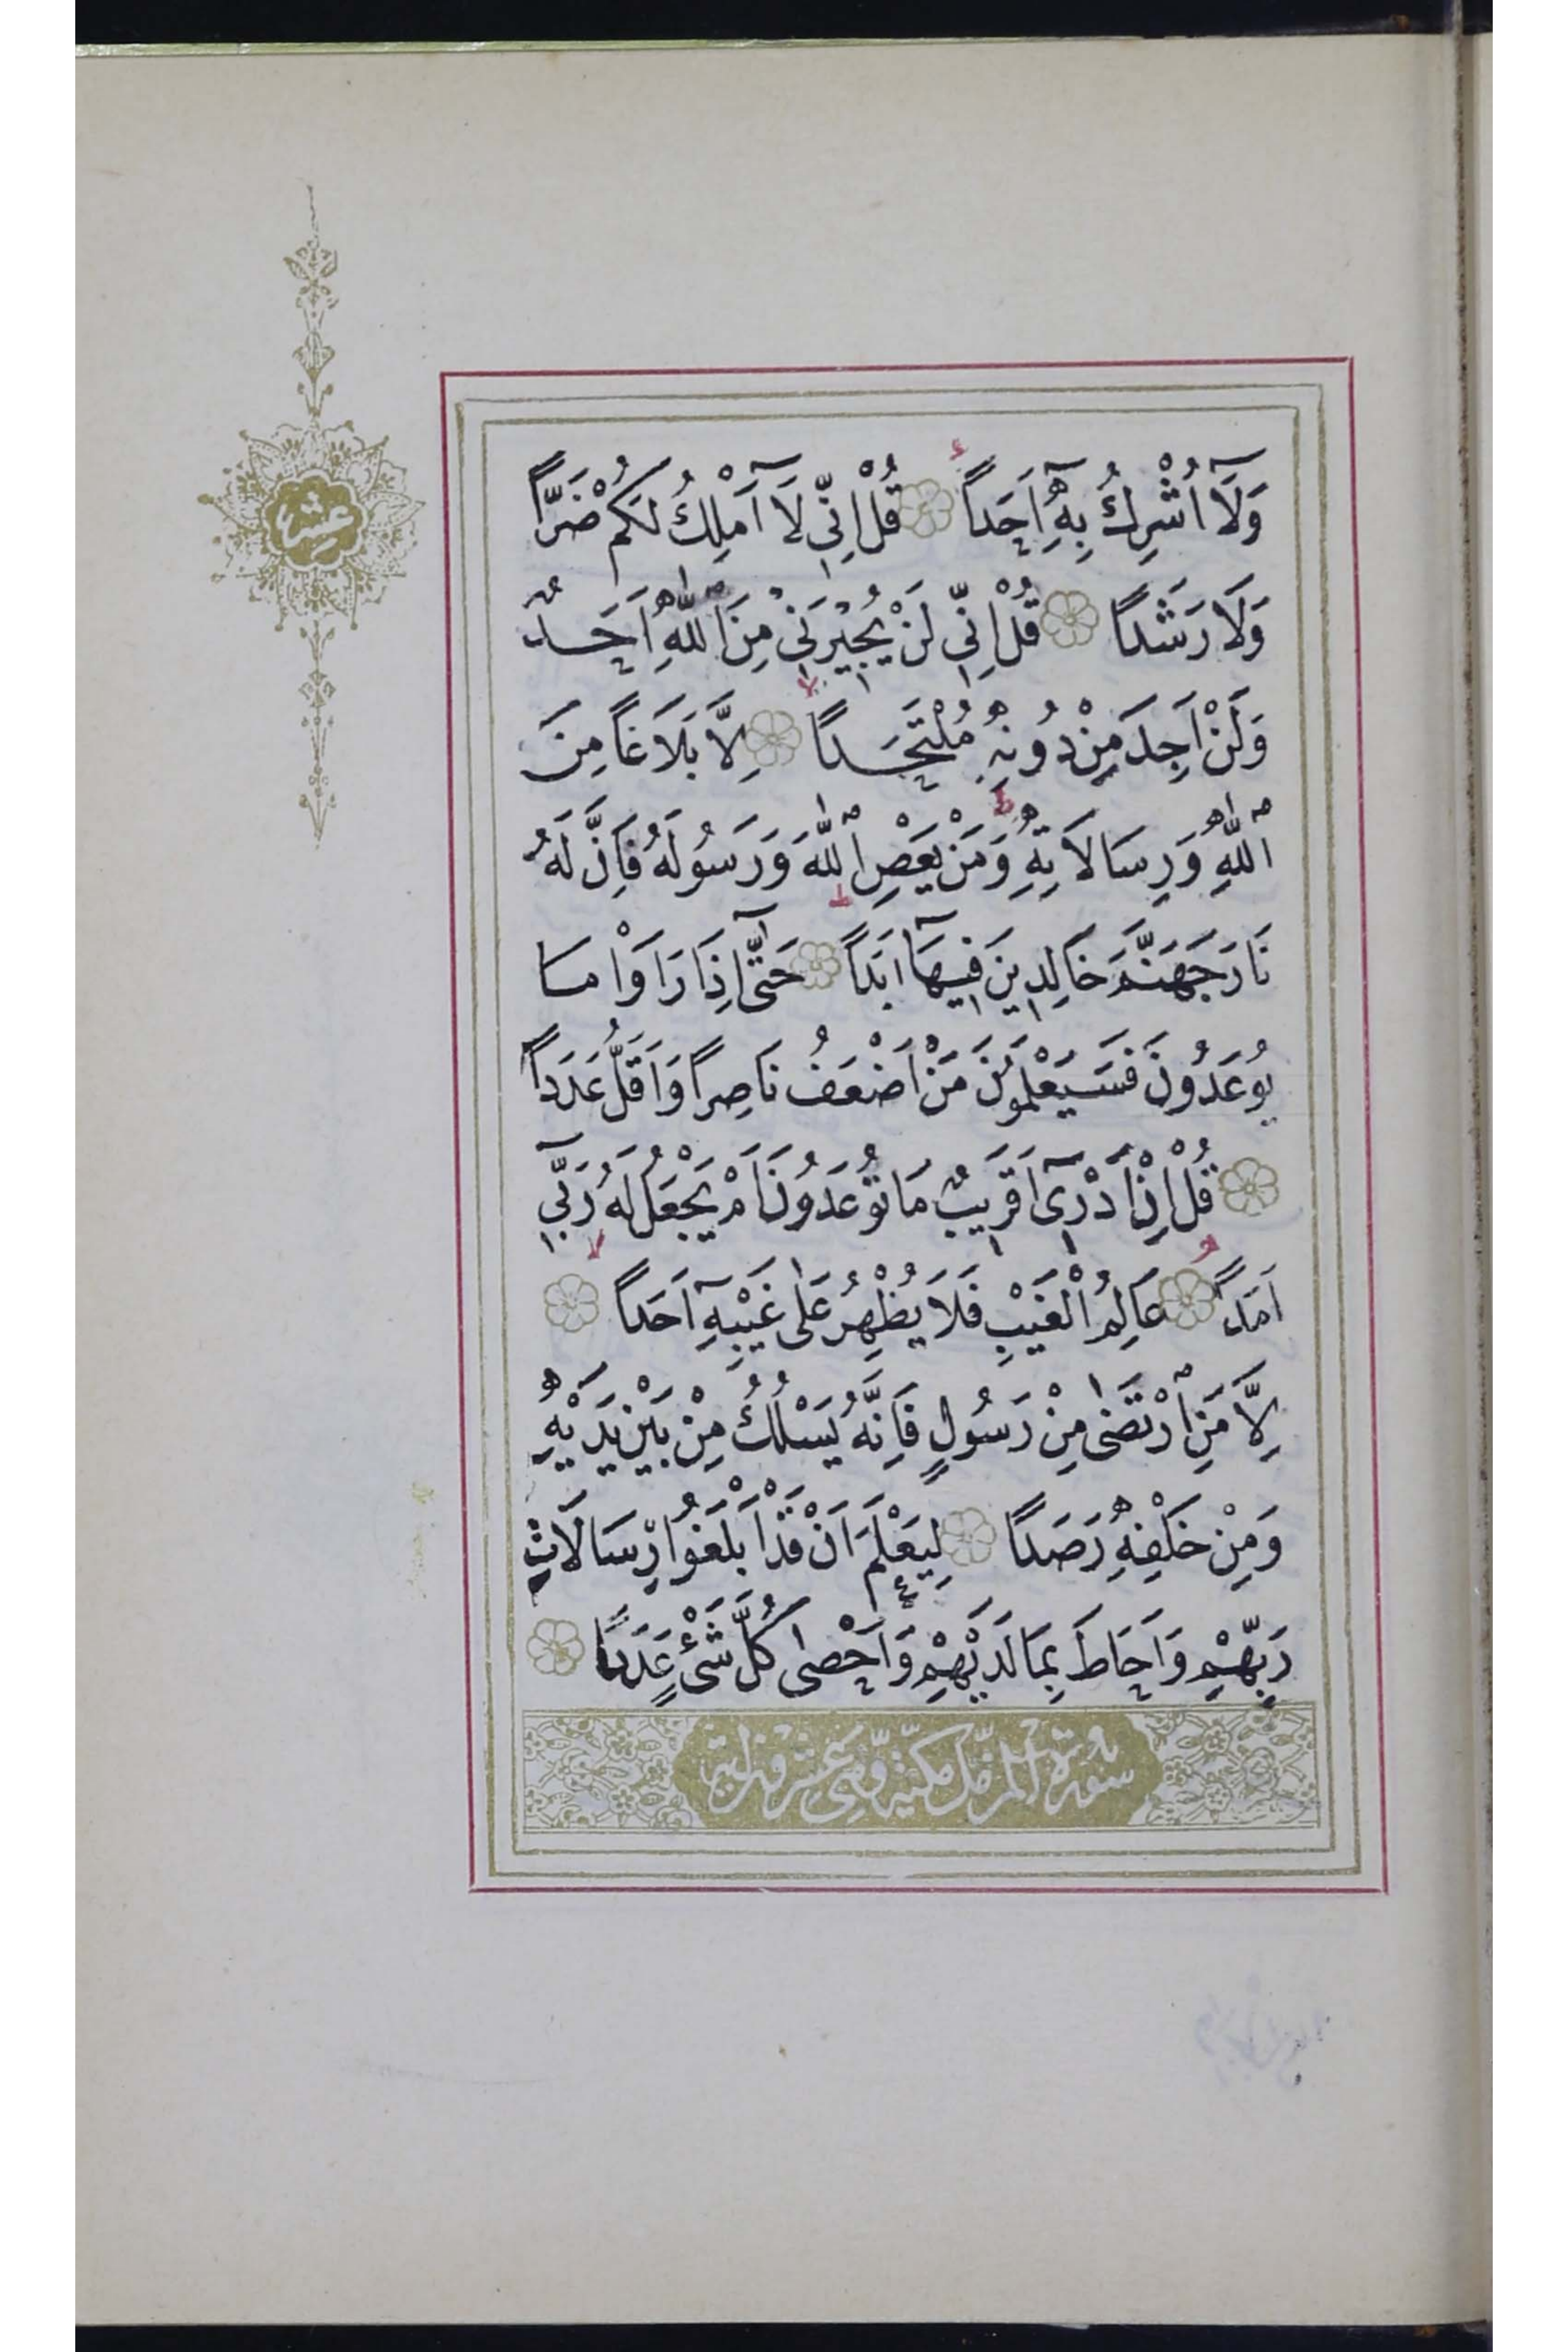 وَلَآ اُشْرِكُ بِهِٓ اَحَداً قُلْ اِنّ۪ي لَآ اَمْلِكُ لَكُمْ ضَرًّا
وَلَا رَشَداً قُلْ اِنّ۪ي لَنْ يُج۪يْرَن۪يْ مِنَ اللّٰهِ اَحَدٌ
وَلَنْ اَجِدَ مِنْ دُونِهِ مُلْتَحَداً اِلَّا بَلَاغاً مِنَ
اللّٰهِ وَرِسَالَاتِهِ وَمَنْ يَعْصِ اللّٰهَ وَرَسُولَهُ فَاِنَّ لَهُ
نَارَ جَهَنَّمَ خَالِد۪ينَ ف۪يهَآ اَبَداً حَتّٰٓى اِذَا رَاَوْا مَا
يُوعَدُونَ فَسَيَعْلَمُونَ مَنْ اَضْعَفُ نَاصِراً وَاَقَلُّ عَدَداً
قُلْ اِنْ اَدْر۪ٓى اَقَر۪يبٌ مَا تُوعَدُونَ اَمْ يَجْعَلُ لَهُ رَبّ۪ٓي
اَمَداً عَالِمُ الْغَيْبِ فَلَا يُظْهِرُ عَلٰى غَيْبِهِٓ اَحَداً
اِلَّا مَنِ ارْتَضٰى مِنْ رَسُولٍ فَاِنَّهُ يَسْلُكُ مِنْ بَيْنِ يَدَيْهِ
وَمِنْ خَلْفِهِ رَصَداً لِيَعْلَمَ اَنْ قَدْ اَبْلَغُوا رِسَالَاتِ
رَبِّهِمْ وَاَحَاطَ بِمَا لَدَيْهِمْ وَاَحْصٰى كُلَّ شَىْءٍ عَدَداً
سُورَةُ الْمُزَّمِّل مَكِّيَّة وَهِىَ عِشْرُونَ اٰيَة
عشر